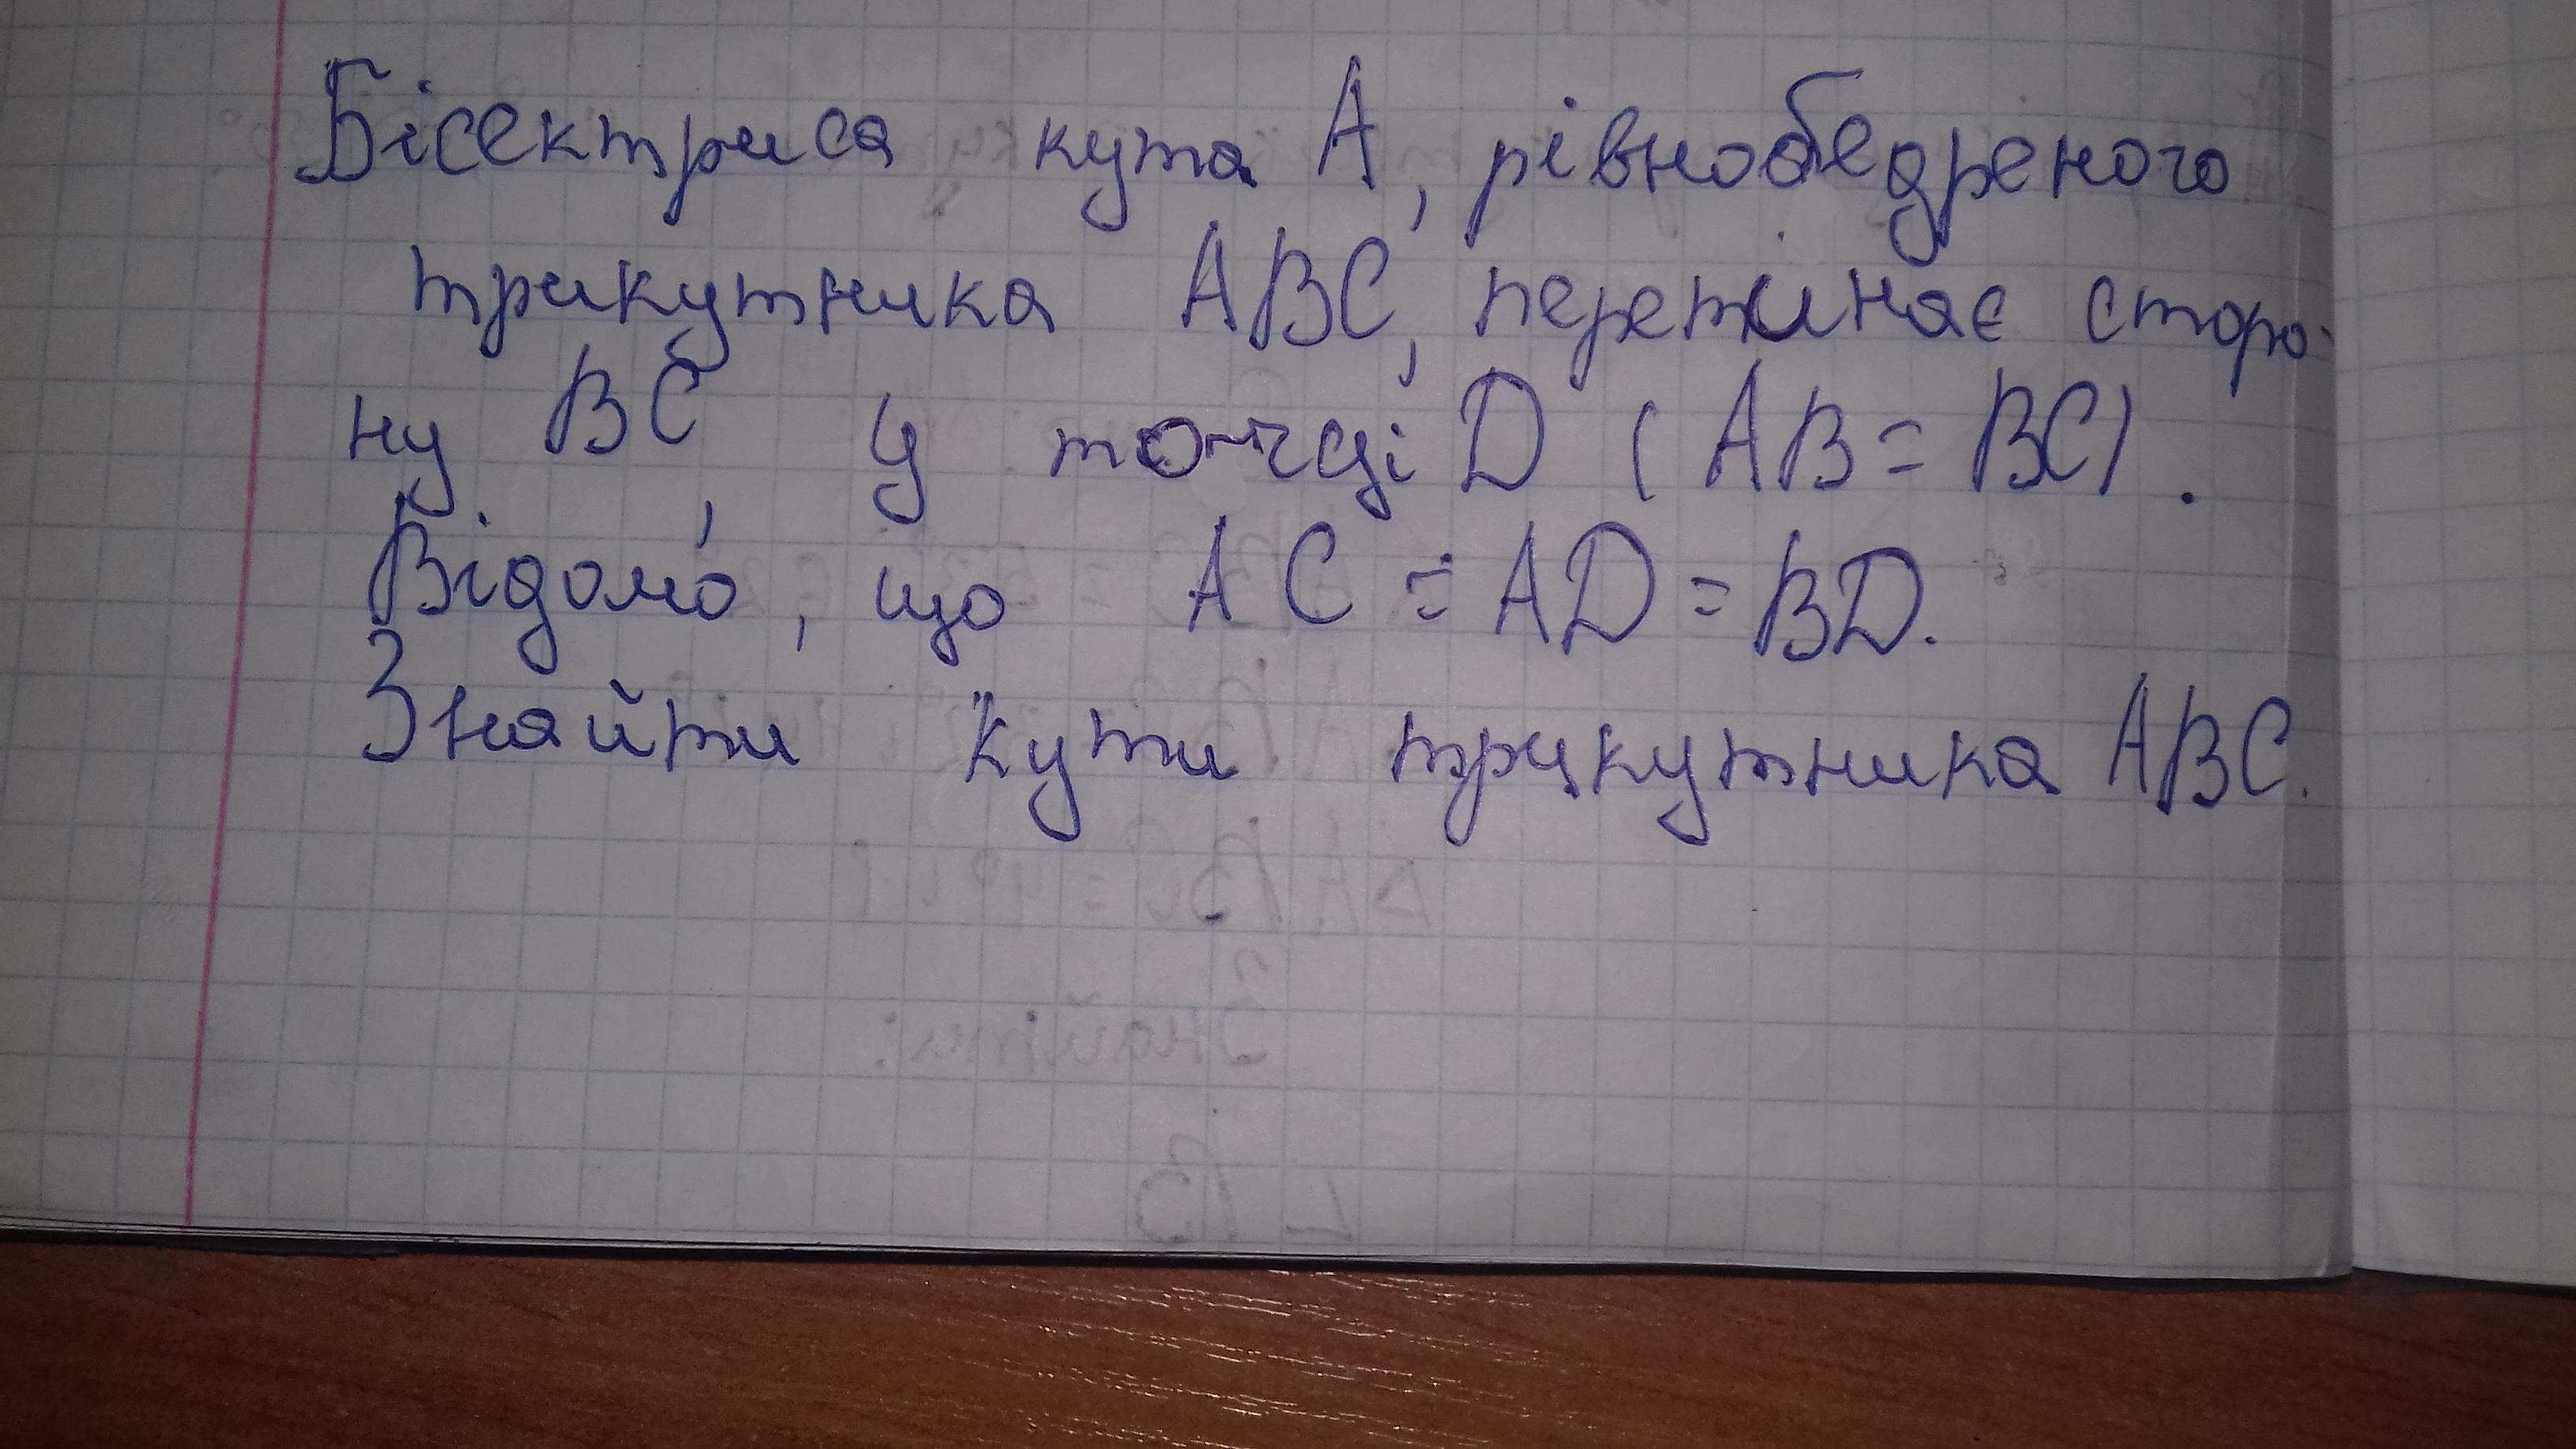 Бісектриса кута А, рівнобедреного
трикутника АВС, перетинає сторо-
ну ВС, у точці D (АВ = ВС).
Відомо, що АС = АD = ВD.
Знайти кути трикутника АВС.